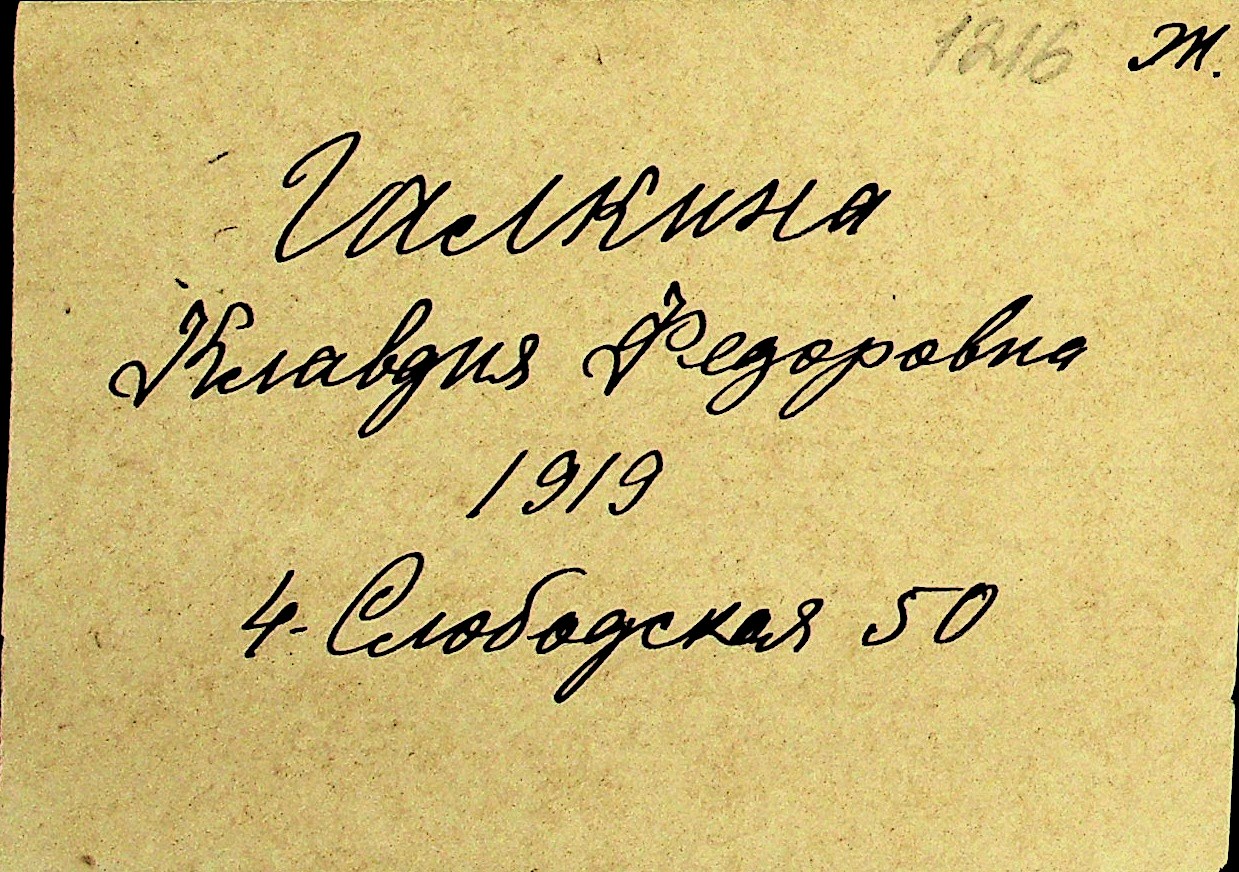 1216 Ж.
Галкина
Клавдия Федоровна
1919
4-Слободская 50